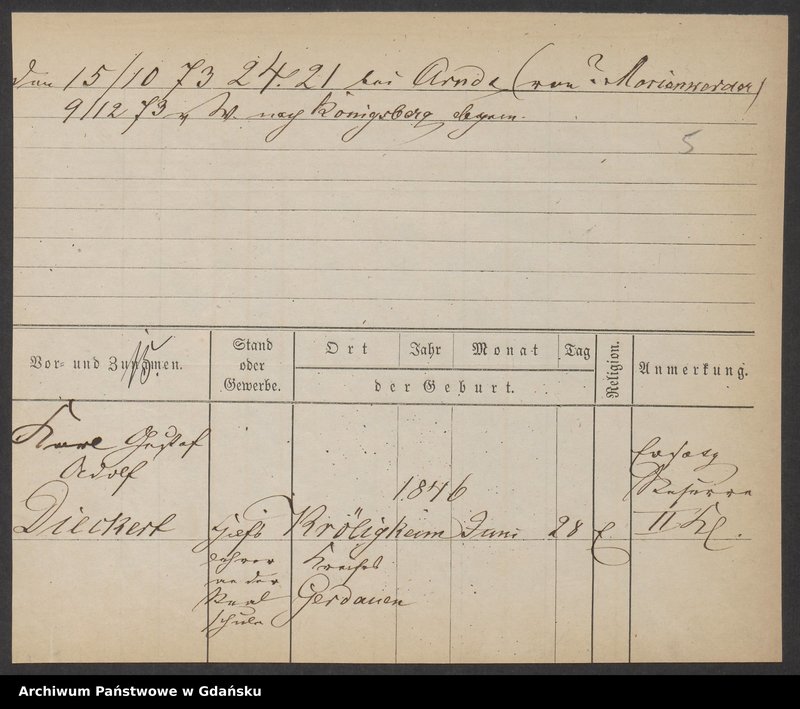 den 15/10 73 24.21 bei Arndt (von ? Marienwerder)
9/12 73 v W. nach Königsberg
5
Vor- und Zunamen.
Stand
oder
Gewerbe.
Ort Jahr Monat Tag
der Geburt.
Religion.
Anmerkung.
Karl Gustaf
Adolf
Dieckert
Hilfs
lehrer
an der
Real
schule
Kröligkeim
Kreises
Gerdauen
1846
Juni
28
E
Ersatz
Reserve
II Kl.
Archiwum Państwowe w Gdańsku